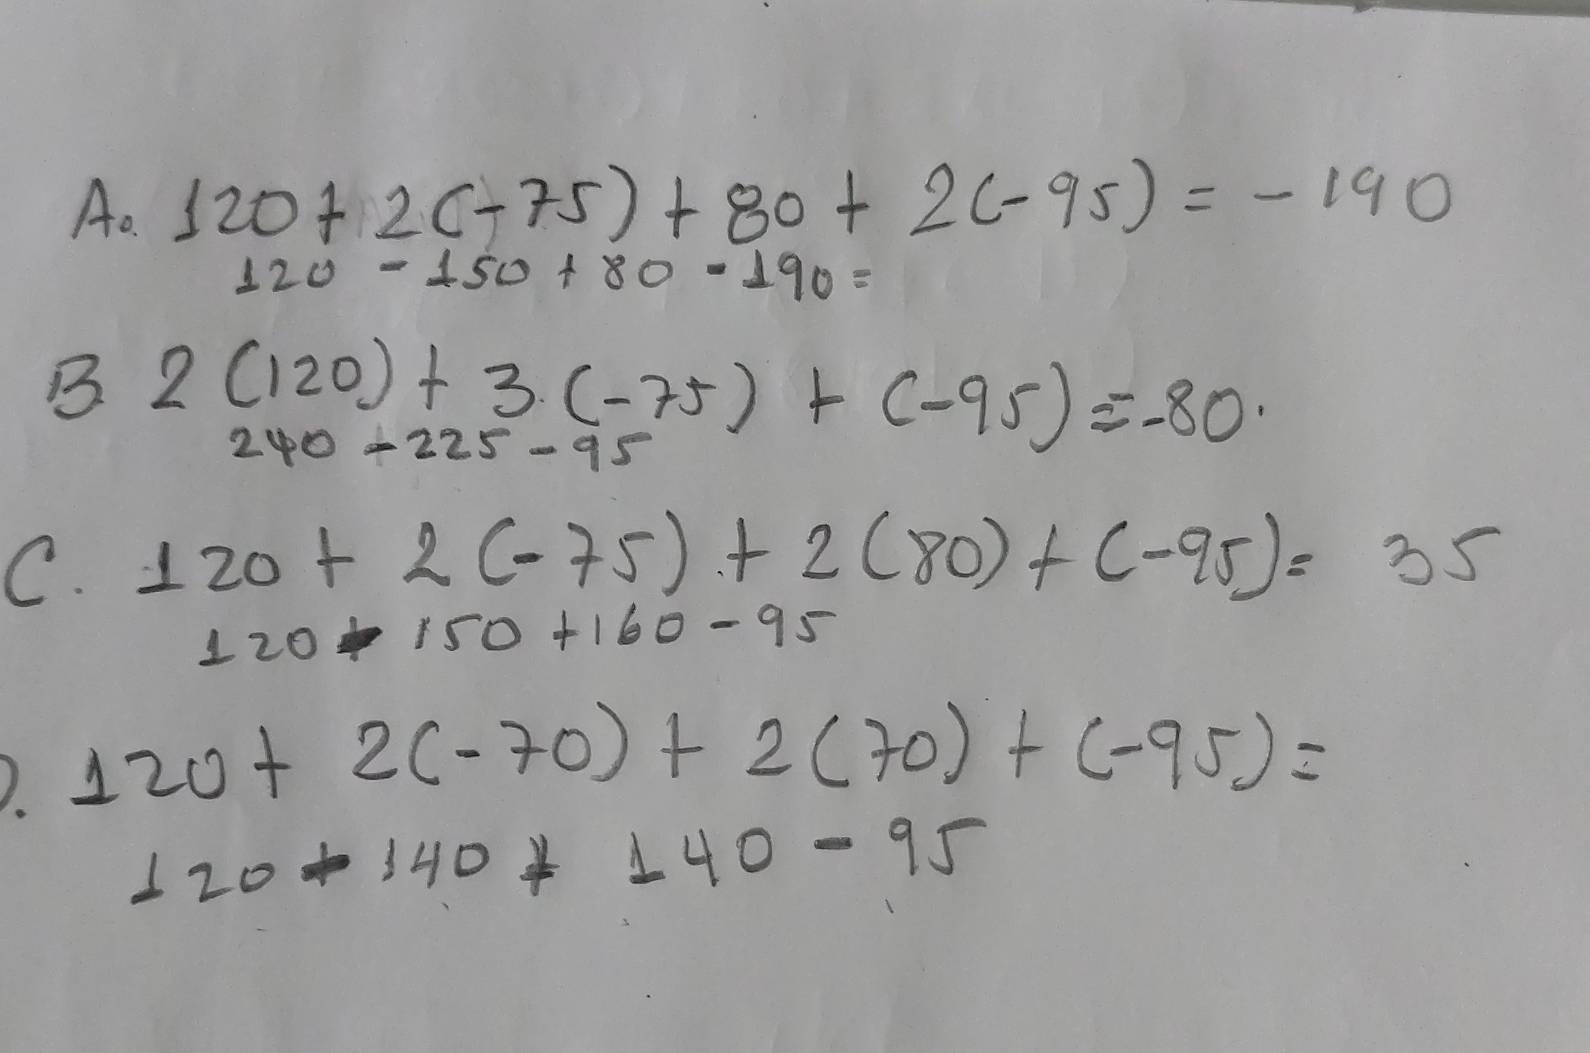 A. 120 + 2(-75) + 80 + 2(-95) = -190
120 - 150 + 80 - 190 =
B 2(120) + 3.(-75) + (-95) = -80.
240 - 225 - 95
C. 120 + 2(-75) + 2(80) + (-95) = 35
120 - 150 + 160 - 95
D. 120 + 2(-70) + 2(70) + (-95) =
120 - 140 + 140 - 95